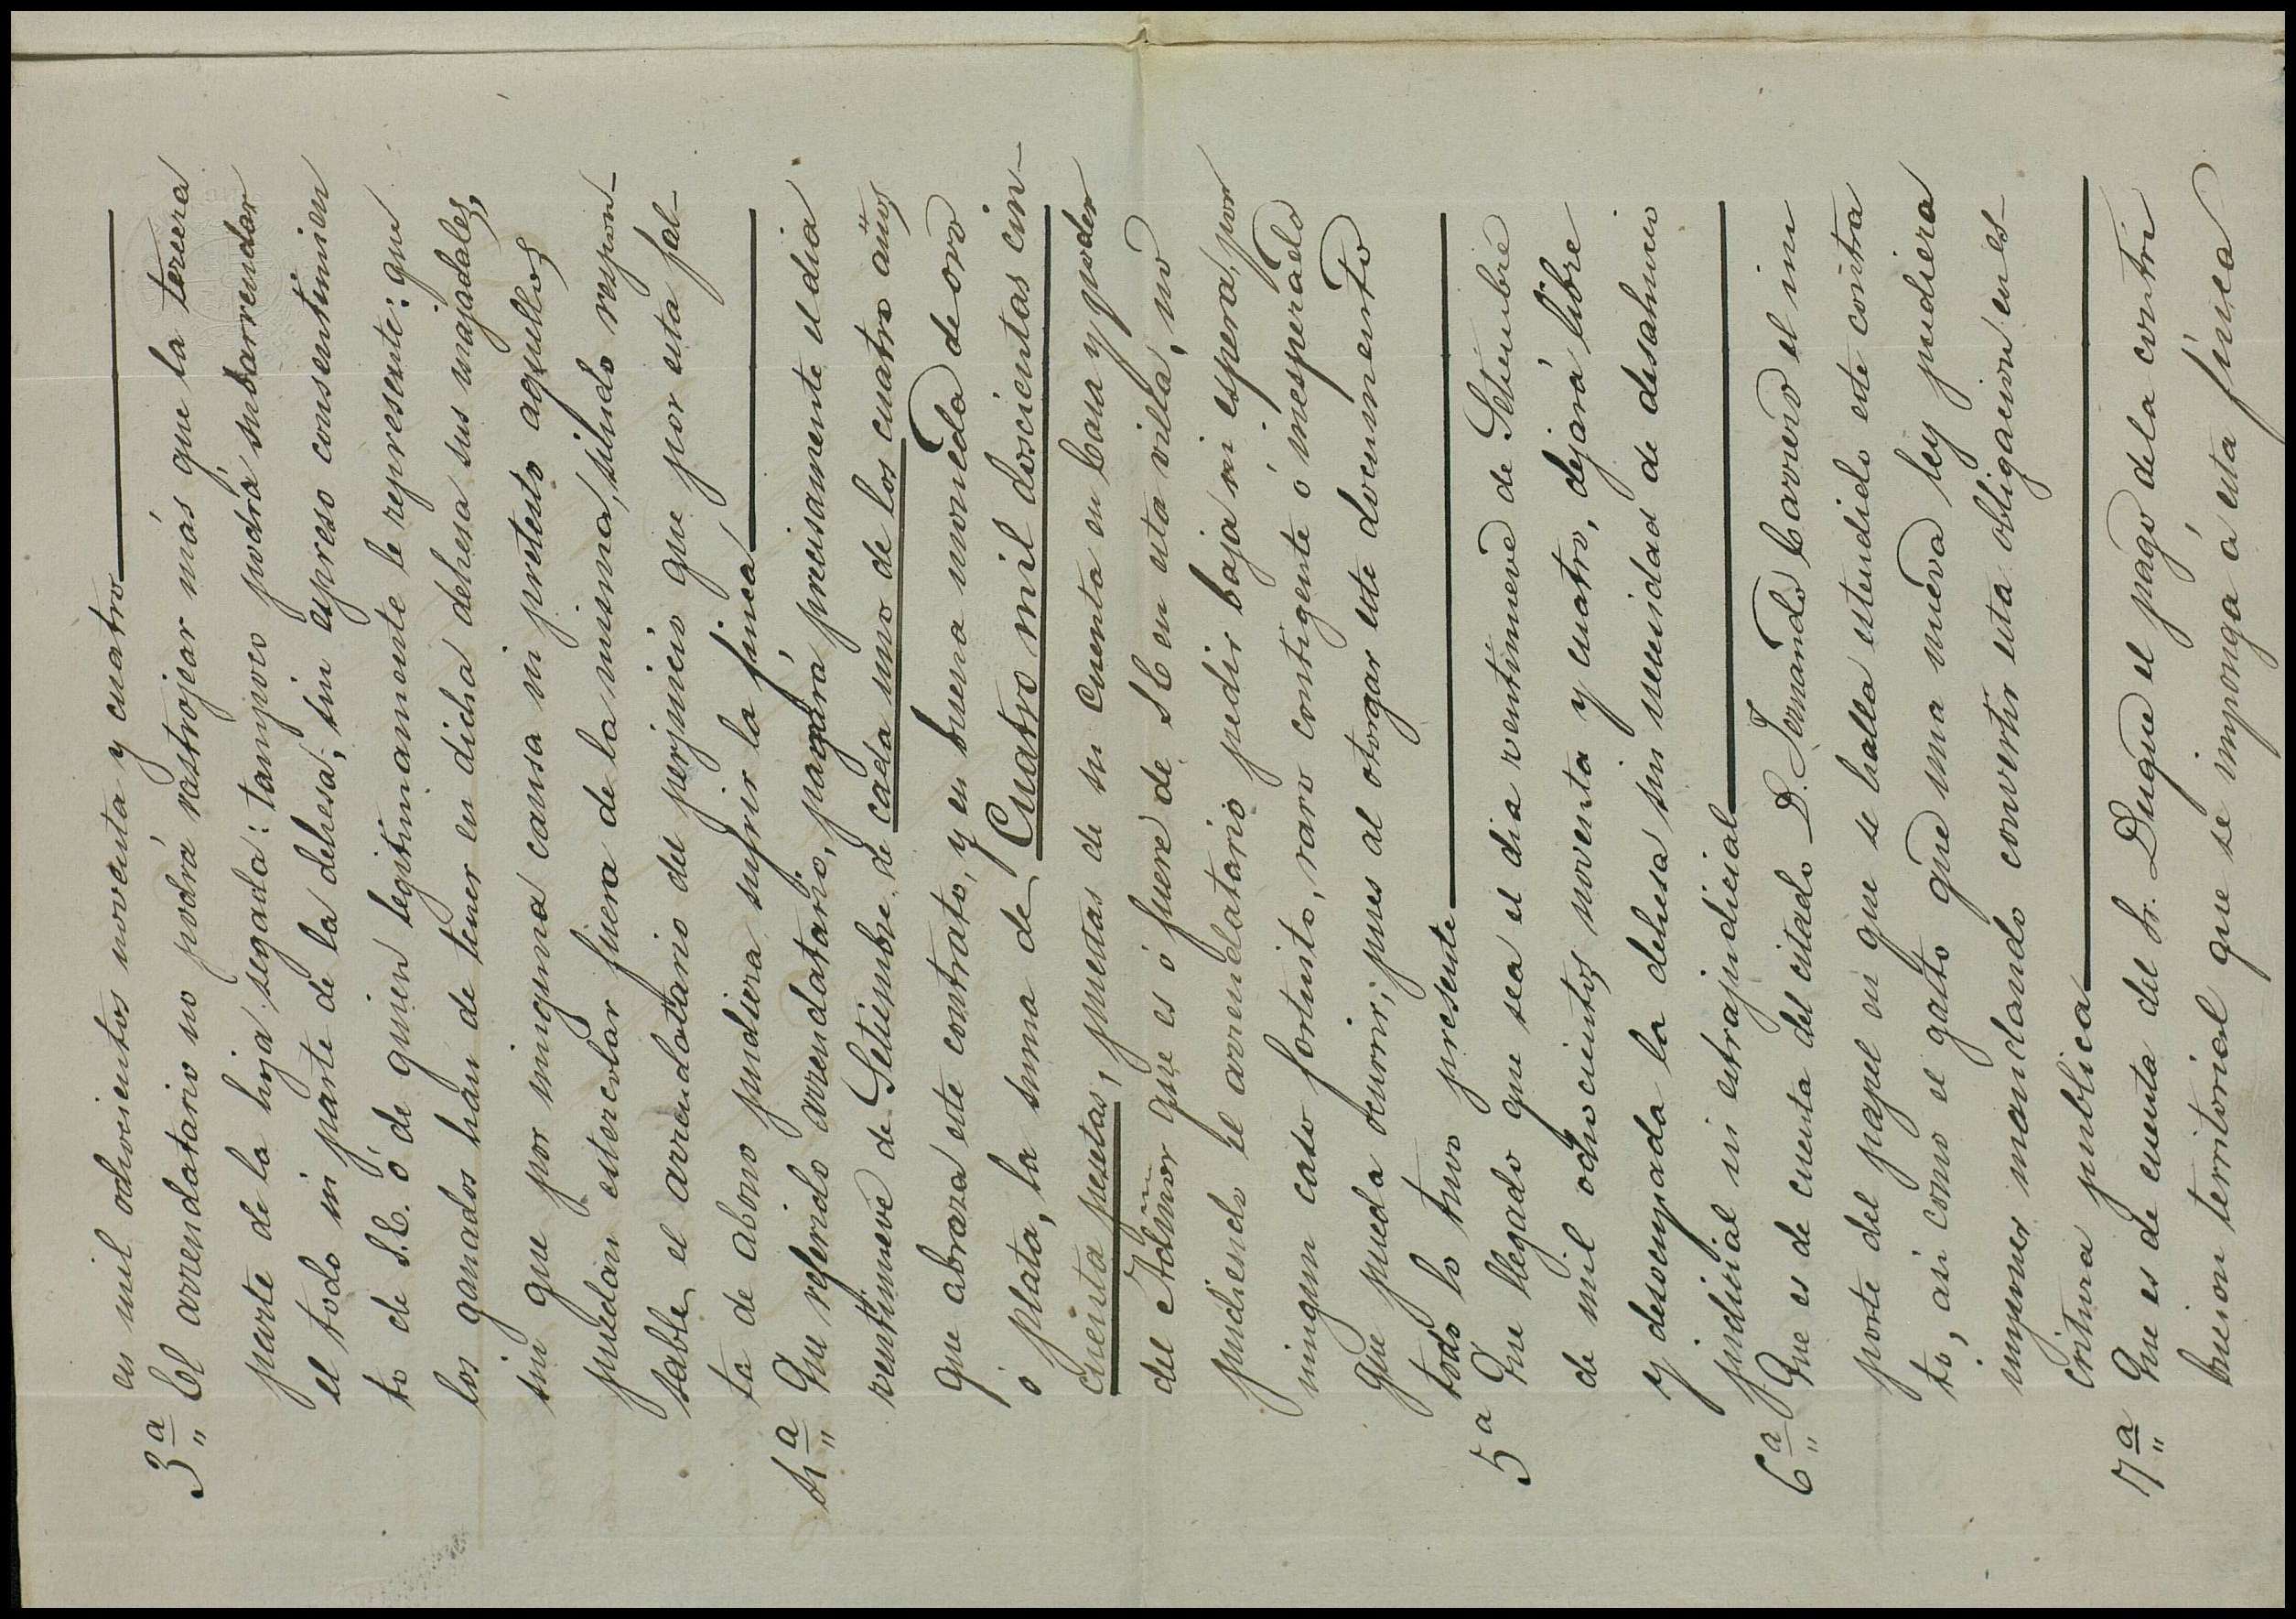 en mil ochocientos noventa y cuatro
3ª El arrendatario no podrá rastrojear más que la tercera
parte de la hoja segada: tampoco podrá subarrendar
el todo ni parte de la dehesa, sin espreso consentimien
to de S.E. ó de quien legitimamente le represente: que
los ganados han de tener en dicha dehesa sus majadales,
sin que por ninguna causa ni pretesto aquellos
puedan estercolar fuera de la misma, siendo respon-
sable el arrendatario del perjuicio que por esta fal-
ta de abono pudiera sufrir la finca
4ª Que referido arrendatario, pagará precisamente el dia
ventinueve de Setiembre de cada uno de los cuatro años
que abraza este contrato, y en buena moneda de oro
ó plata, la suma de Cuatro mil doscientas cin-
cuenta pesetas, puestas de su cuenta en Casa y poder
del Admor que es ó fuere de S E en esta villa, no
pudiendo el arrendatario pedir baja ni espera, por
ningun caso fortuito, raro contigente ó inesperado
que pueda ocurrir, pues al otorgar este documento
todo lo tuvo presente
5ª Que llegado que sea el dia ventinueve de Setiembre
de mil ochocientos noventa y cuatro, dejará libre
y desocupada la dehesa sin necesidad de desahucio
judicial ni estrajudicial
6ª Que es de cuenta del citado D. Fernando Carrero el im
porte del papel en que se halla estendido este contra
to, asi como el gasto que una nueva ley pudiera
imponer mandando convertir esta obligacion en es-
critura publica
7ª Que es de cuenta del Sr. Duque el pago de la contri
bucion territorial que se imponga á esta finca